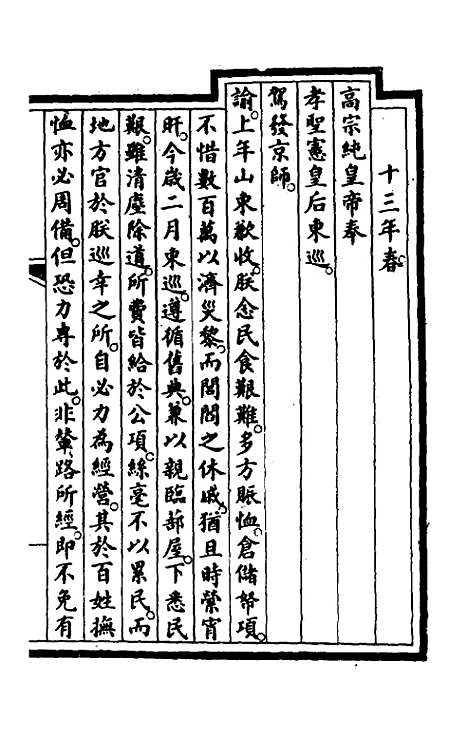 十三年春。
高宗純皇帝奉
孝聖憲皇后東巡。
駕發京師。
諭。上年山東歉收。朕念民食艱難。多方賑恤。倉儲帑項。
不惜數百萬以濟災黎。而閭閻之休戚。猶且時縈宵
旰。今歲二月東巡。遵循舊典。兼以親臨蔀屋。下悉民
艱。雖清塵除道。所費皆給於公項。絲毫不以累民。而
地方官於朕巡幸之所。自必力為經營。其於百姓撫
恤亦必周備。但恐力專於此。非輦路所經。即不免有